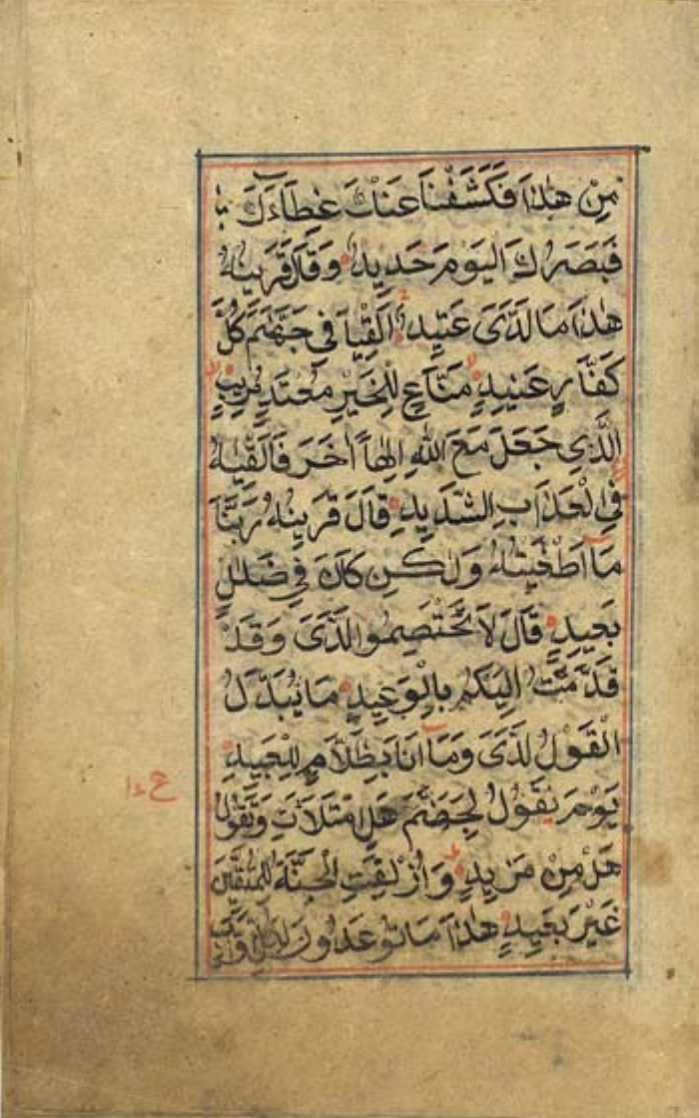 مِنْ هٰذَا فَكَشَفْنَا عَنْكَ غِطَاۤءَكَ
فَبَصَرُكَ الْيَوْمَ حَدِيدٌ وَقَالَ قَرِينُهُ
هٰذَا مَا لَدَىَّ عَتِيدٌ اَلْقِيَا فِى جَهَنَّمَ كُلَّ
كَفَّارٍ عَنِيدٍ مَنَّاعٍ لِلْخَيْرِ مُعْتَدٍ مُرِيبٍ
الَّذِى جَعَلَ مَعَ اللّٰهِ اِلٰهًا اٰخَرَ فَاَلْقِيٰهُ
فِى الْعَذَابِ الشَّدِيدِ قَالَ قَرِينُهُ رَبَّنَا
مَاۤ اَطْغَيْتُهُ وَلٰكِنْ كَانَ فِى ضَلٰلٍ
بَعِيدٍ قَالَ لَا تَخْتَصِمُوا لَدَىَّ وَقَدْ
قَدَّمْتُ اِلَيْكُمْ بِالْوَعِيدِ مَا يُبَدَّلُ
الْقَوْلُ لَدَىَّ وَمَاۤ اَنَا بِظَلَّامٍ لِلْعَبِيدِ
يَوْمَ نَقُولُ لِجَهَنَّمَ هَلِ امْتَلَاْتِ وَتَقُولُ
هَلْ مِنْ مَزِيدٍ وَاُزْلِفَتِ الْجَنَّةُ لِلْمُتَّقِينَ
غَيْرَ بَعِيدٍ هٰذَا مَا تُوعَدُونَ لِكُلِّ اَوَّابٍ